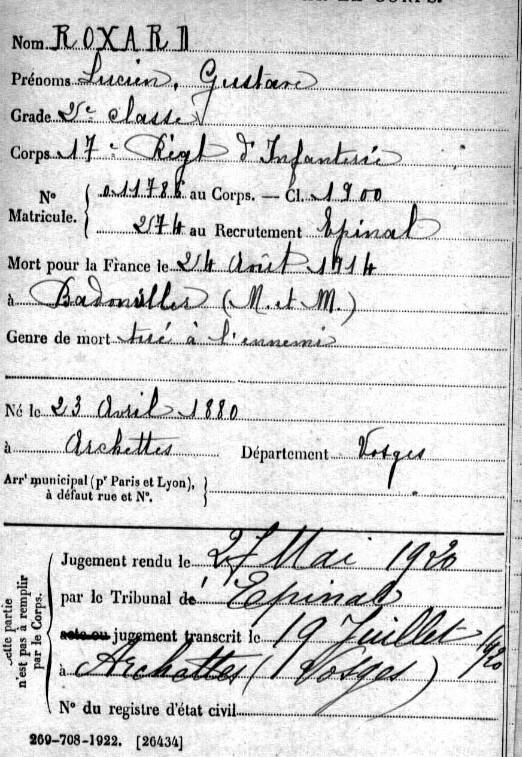 Nom ROXARD
Prénoms Lucien, Gustave
Grade 2e classe
Corps 17e Régt d'Infanterie
No Matricule. { 011786 au Corps. — Cl. 1900
274 au Recrutement Epinal
Mort pour la France le 24 Août 1914
à Badonviller (M. et M.)
Genre de mort tué à l'ennemi
Né le 23 Avril 1880
à Archettes Département Vosges
Arrt municipal (pr Paris et Lyon),
à défaut rue et No.
Cette partie
n'est pas à remplir
par le Corps.
Jugement rendu le 27 Mai 1920
par le Tribunal de Epinal
acte ou jugement transcrit le 19 Juillet 1920
à Archettes (Vosges)
No du registre d'état civil
269-708-1922. [26434]